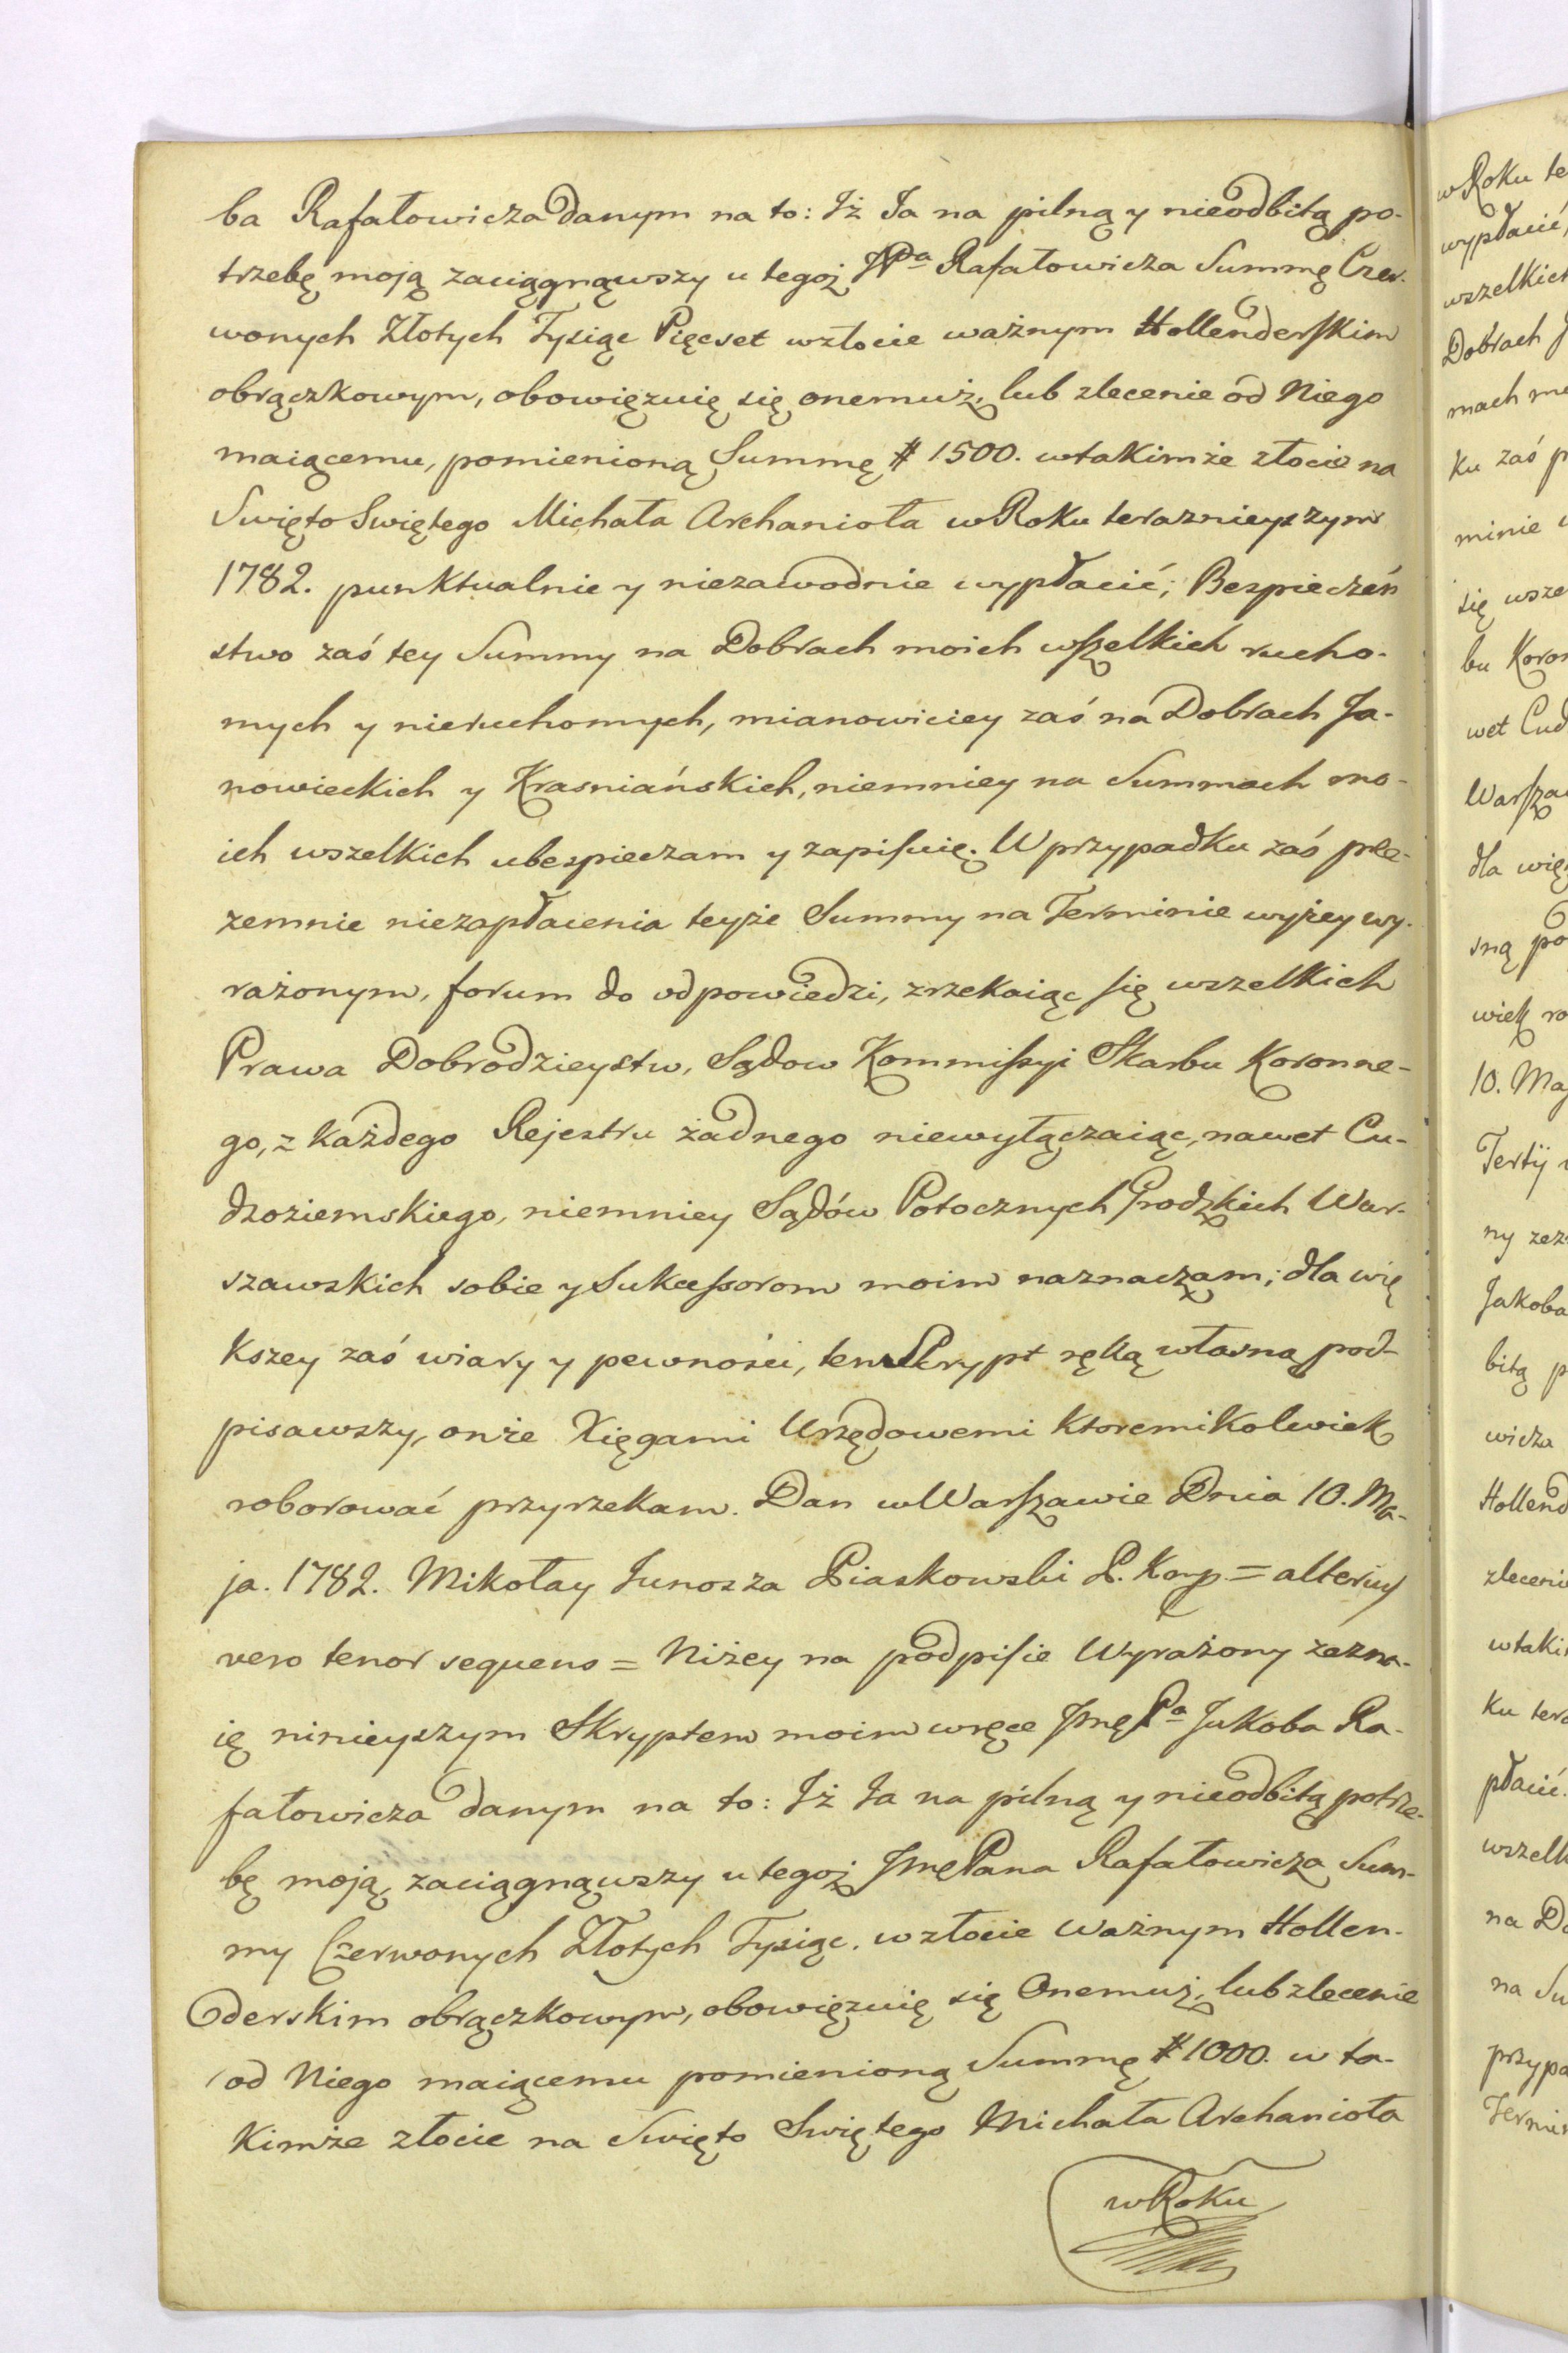 ba Rafałowicza danym na to: Iż Ja na pilną y nieodbitą po-
trzebę moją zaciągnąwszy u tegoż JPa Rafałowicza Summę Czer-
wonych Złotych Tysiąc Pięcset wzłocie ważnym Hollenderskim
obrączkowym, obowięzuię się onemuż, lub zlecenie od Niego
maiącemu, pomienioną Summę # 1500. wtakimże złocie na
Swięto Swiętego Michała Archanioła w Roku terazniejszym
1782. punktualnie y niezawodnie wypłacić; Bezpieczeń
stwo zaś tey Summy na Dobrach moich wszelkich rucho-
mych y nieruchomych, mianowiciey zaś na Dobrach Ja-
nowieckich y Krasniańskich, niemniey na Summach mo-
ich wszelkich ubezpieczam y zapisuię. W przypadku zaś prze-
zemnie niezapłacenia teyże Summy na Terminie wyżey wy-
rażonym, forum do odpowiedzi, zrzekaiąc się wszelkich
Prawa Dobrodzieystw, Sądow Kommissyi Skarbu Koronne-
go, z każdego Rejestru żadnego niewyłączaiąc, nawet Cu-
dzoziemskiego, niemniey Sądów Potocznych Grodzkich War-
szawskich sobie y Sukcessorom moim naznaczam; dla wię
kszey zaś wiary y pewności, ten Skrypt ręką własną pod-
pisawszy, onże Xięgami Urzędowemi ktoremikolwiek
roborować przyrzekam. Dan w Warszawie Dnia 10. Ma-
ja. 1782. Mikołay Junosza Piaskowski P. Krzp. = alterius
vero tenor sequens = Niżey na podpisie Wyrażony zezna-
ię ninieyszym Skryptem moim wręce Jmę Pa Jakoba Ra-
fałowicza danym na to: Iż Ja na pilną y nieodbitą potrze-
bę moją, zaciągnąwszy u tegoż Jmę Pana Rafałowicza Sum-
my Czerwonych Złotych Tysiąc. w złocie Ważnym Hollen-
derskim obrączkowym, obowięzuię się Onemuż, lub zlecenie
od Niego maiącemu pomienioną Summę # 1000. w ta-
kimże złocie na Swięto Swiętego Michała Archanioła
w Roku
w Roku te
wypłacić,
wszelkich
Dobrach J
mach mo
ku zaś p
minie
się wsze
bu Koron
wet Cud
Warsza
dla wię
sną po
wiek ro
10. Maj
Tertij
ny zez
Jakoba
bitą p
wicza
Hollend
zleceni
wtaki
ku tera
płacić.
wszelk
na Do
na Su
przypa
Termin